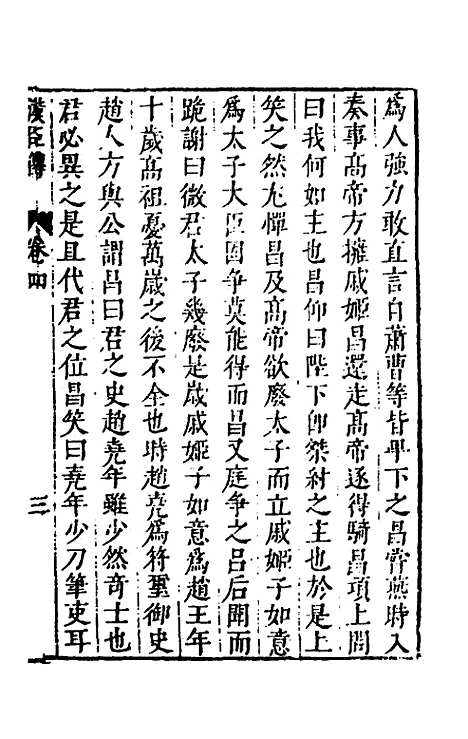 為人強力敢直言自蕭曹等皆卑下之昌嘗燕時入
奏事高帝方擁戚姬昌還走高帝逐得騎昌項上問
曰我何如主也昌仰曰陛下卽桀紂之主也於是上
笑之然尤憚昌及高帝欲廢太子而立戚姬子如意
為太子大臣固爭莫能得而昌又庭爭之呂后聞而
跪謝曰微君太子幾廢是歲戚姬子如意為趙王年
十歲高祖憂萬歲之後不全也時趙堯為符璽御史
趙人方與公謂昌曰君之史趙堯年雖少然奇士也
君必異之是且代君之位昌笑曰堯年少刀筆吏耳
漢臣傳 卷四 三